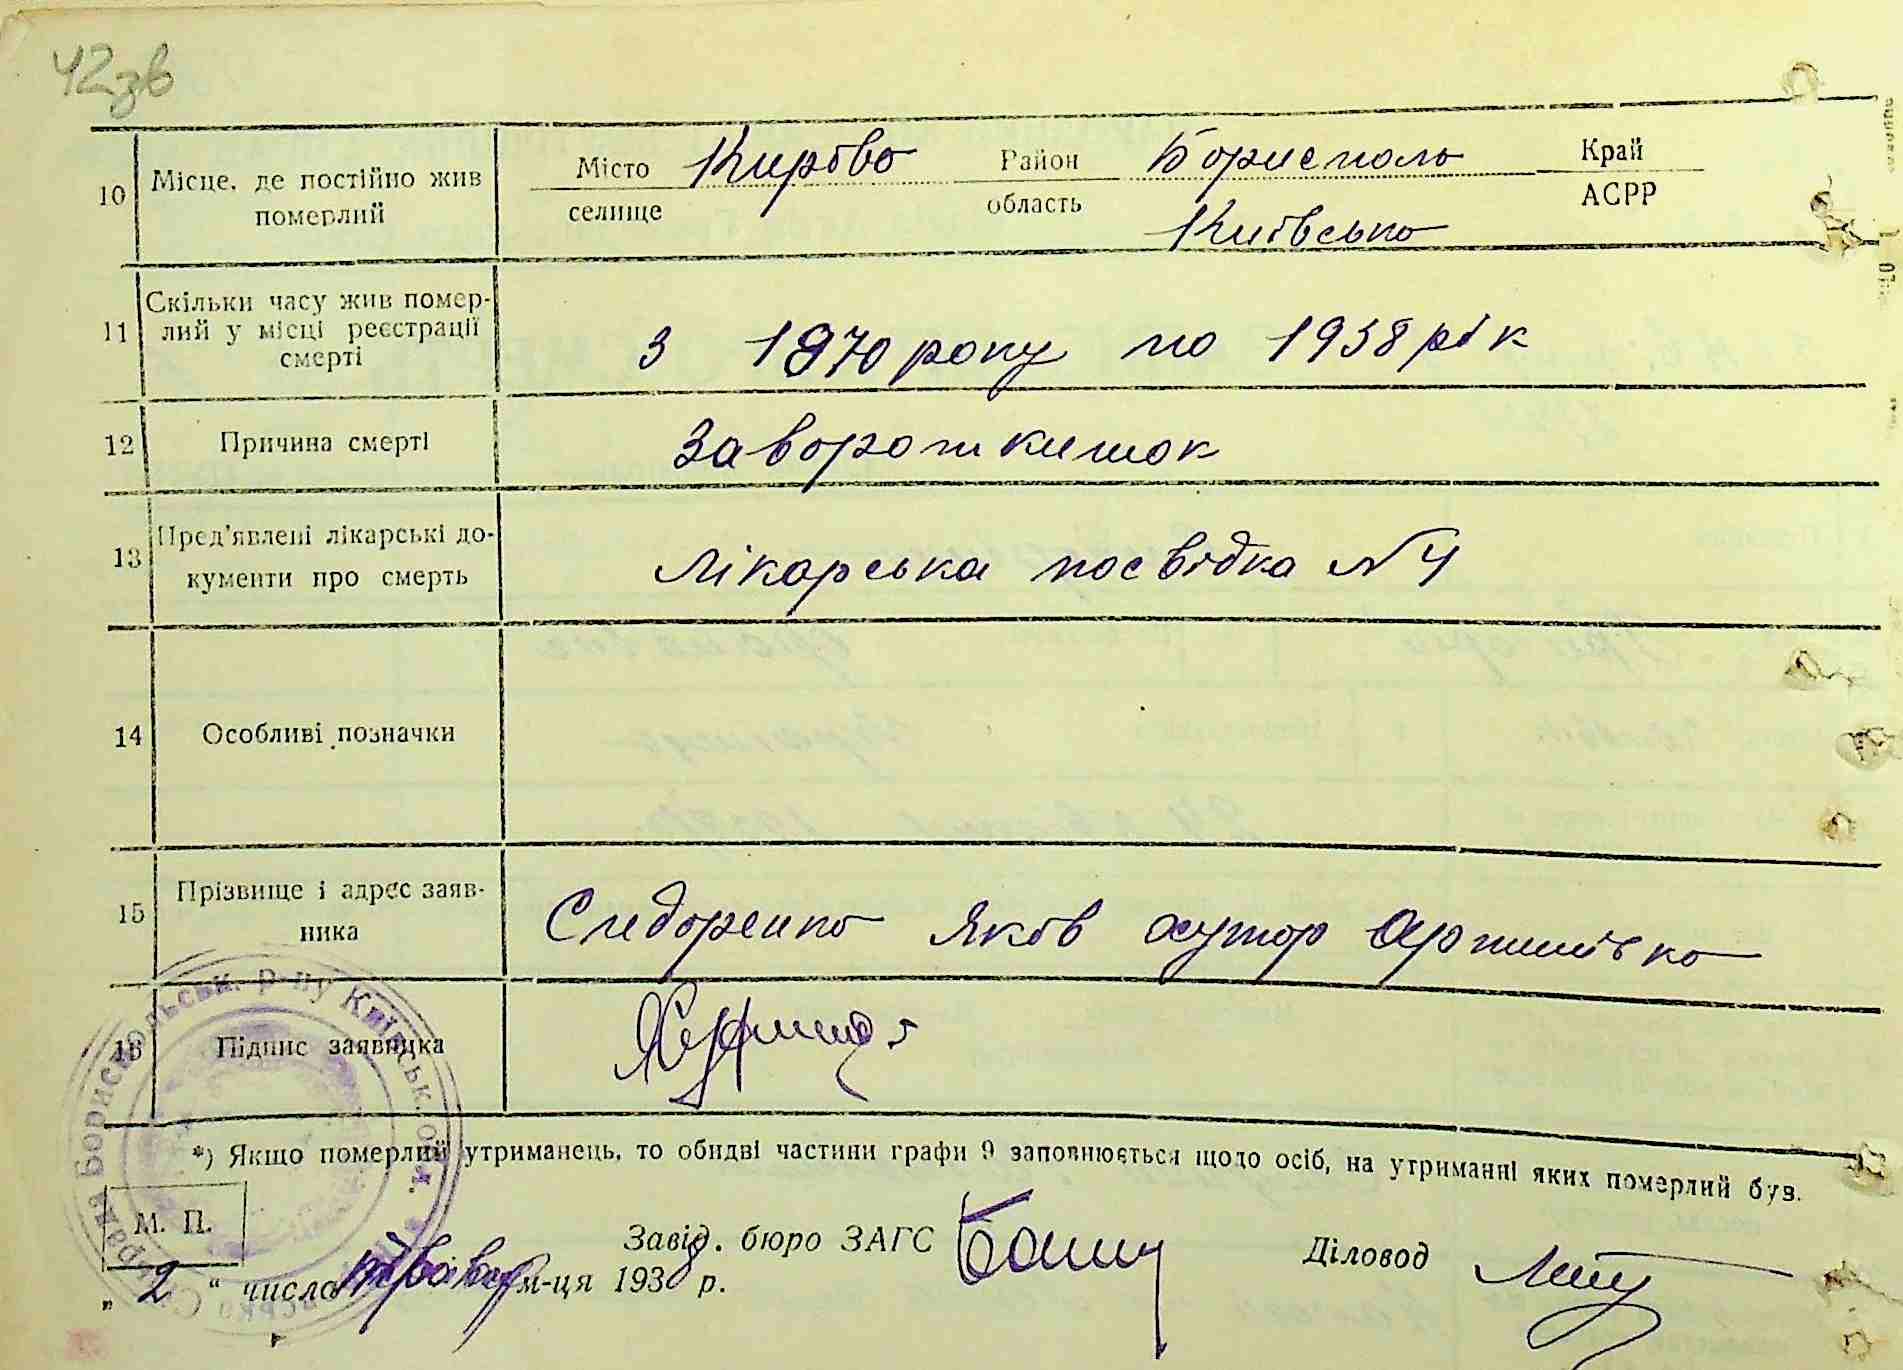 42зв
10 Місце, де постійно жив померлий
Місто Кирово Район Бориспольо Край
селище область Київсько АСРР
11 Скільки часу жив помер-
лий у місці реєстрації
смерті
з 1870 року по 1938 рік
12 Причина смерті Заворот кишок
13 Пред’явлені лікарські до-
кументи про смерть
Лікарська посвідка №4
14 Особливі позначки
15 Прізвище і адрес заяв-
ника
Сидоренко Яков хутор
16 Підпис заявника
*) Якщо померлий утриманець, то обидві частини графи 9 заповнюється щодо осіб, на утриманні яких померлий був.
М. П.
Завід. бюро ЗАГС Діловод
„ 2 “ числа м-ця 1938 р.
Бориспольськ. р-ну Київськ. обл.